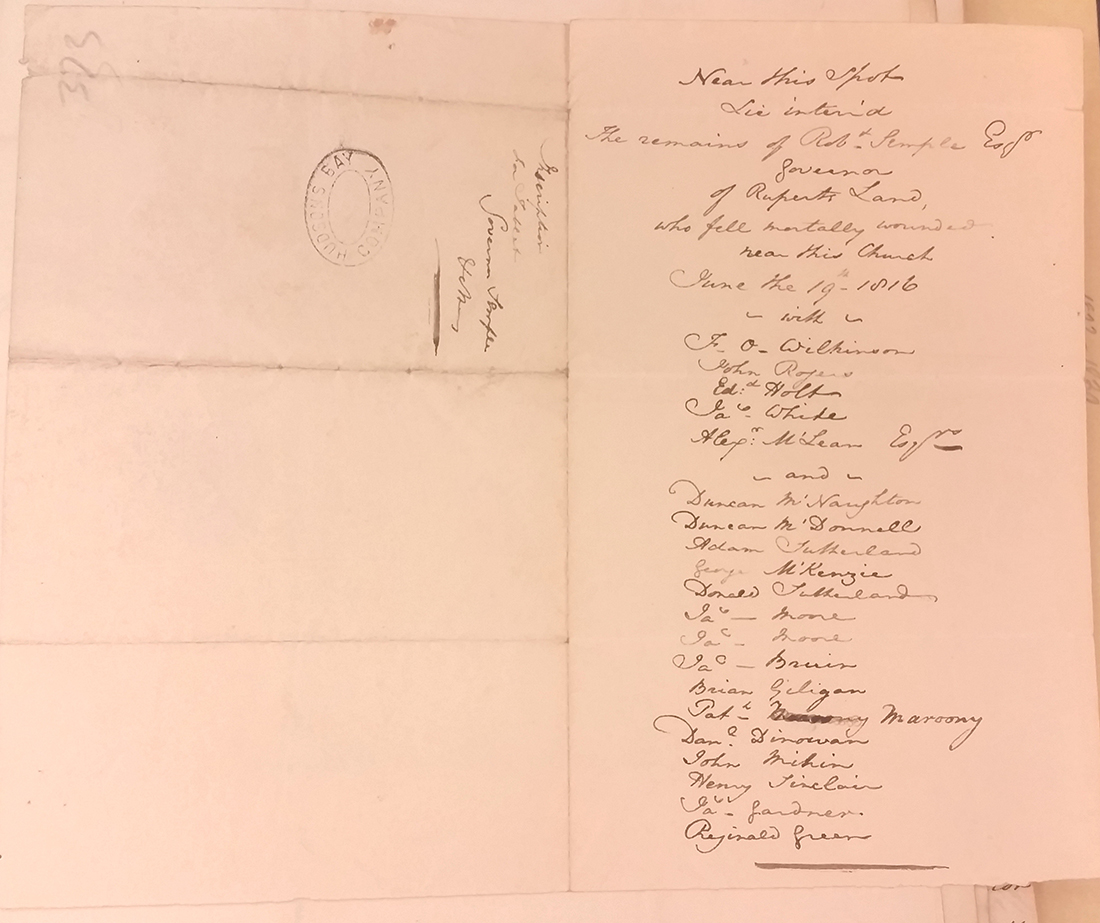 373
HUDSONS BAY COMPANY
Inscription
for Tablet
Governor Semple
&c &c
Near this Spot
Lie inter'd
The remains of Robt Semple Esqr
Governor
of Ruperts Land,
who fell mortally wounded
near this Church
June the 19th 1816
~ with ~
J- O- Wilkinson
John Rogers
Ed:d Holt
Jas- White
Alexr: McLean Esqrs
~ and ~
Duncan McNaughton
Duncan McDonnell
Adam Sutherland
George McKenzie
Donald Sutherland
Jas — Moore
Jas — Moore
Jas — Bruin
Brian Giligan
Patk Maroony
Danl Dinowan
John Mihin
Henry Sinclair
Jas- Gardner
Reginald Green